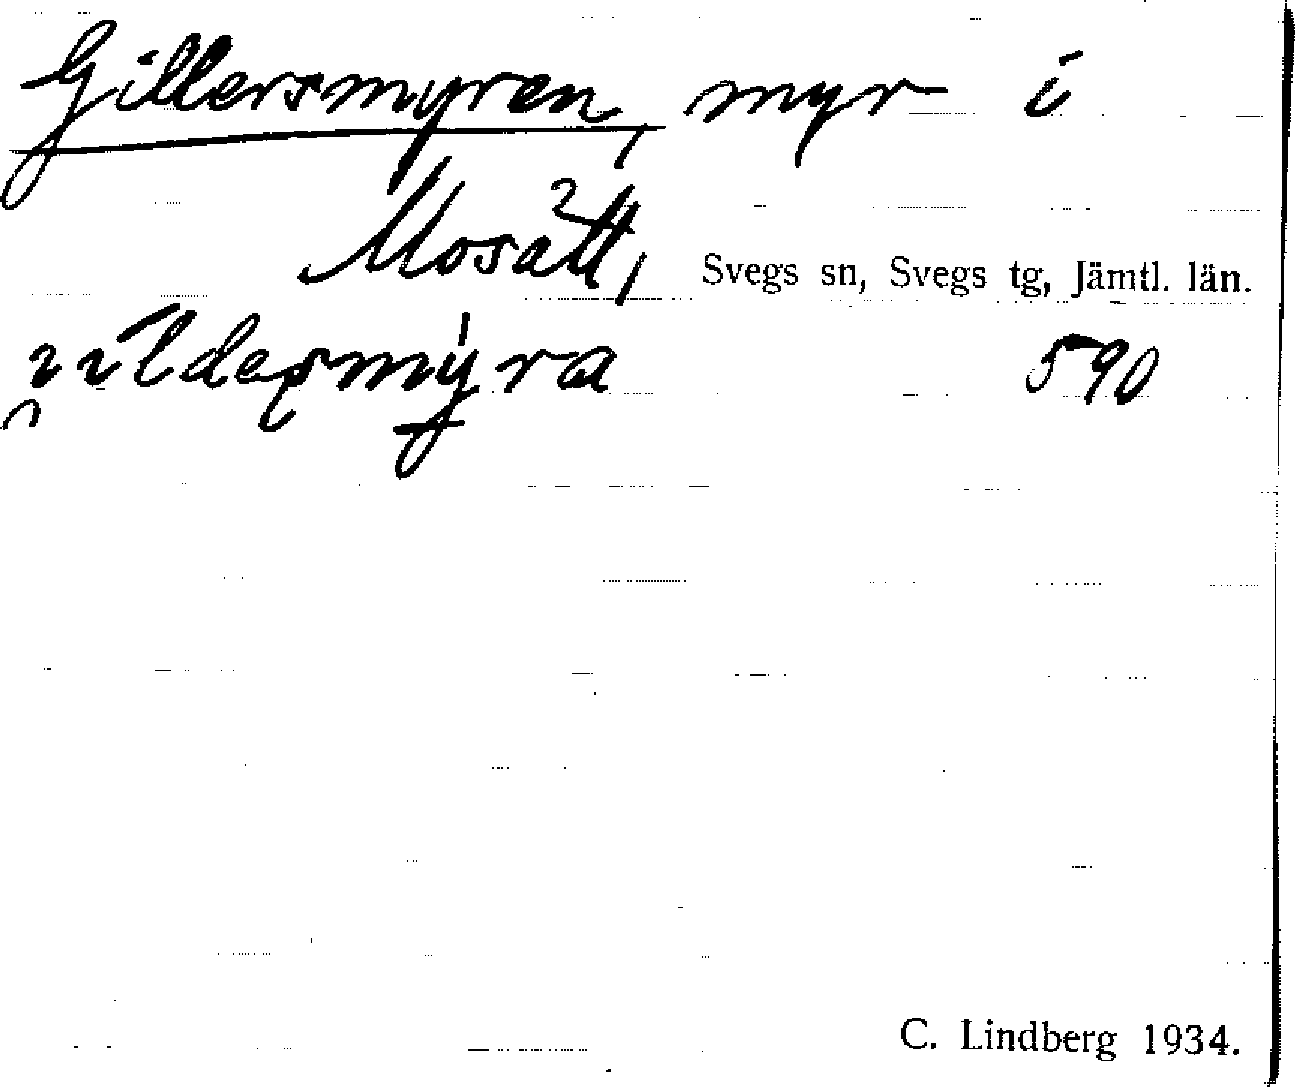 Gillersmyren, myr i
Mosätt, Svegs sn, Svegs tg, Jämtl. län.
590
C. Lindberg 1934.